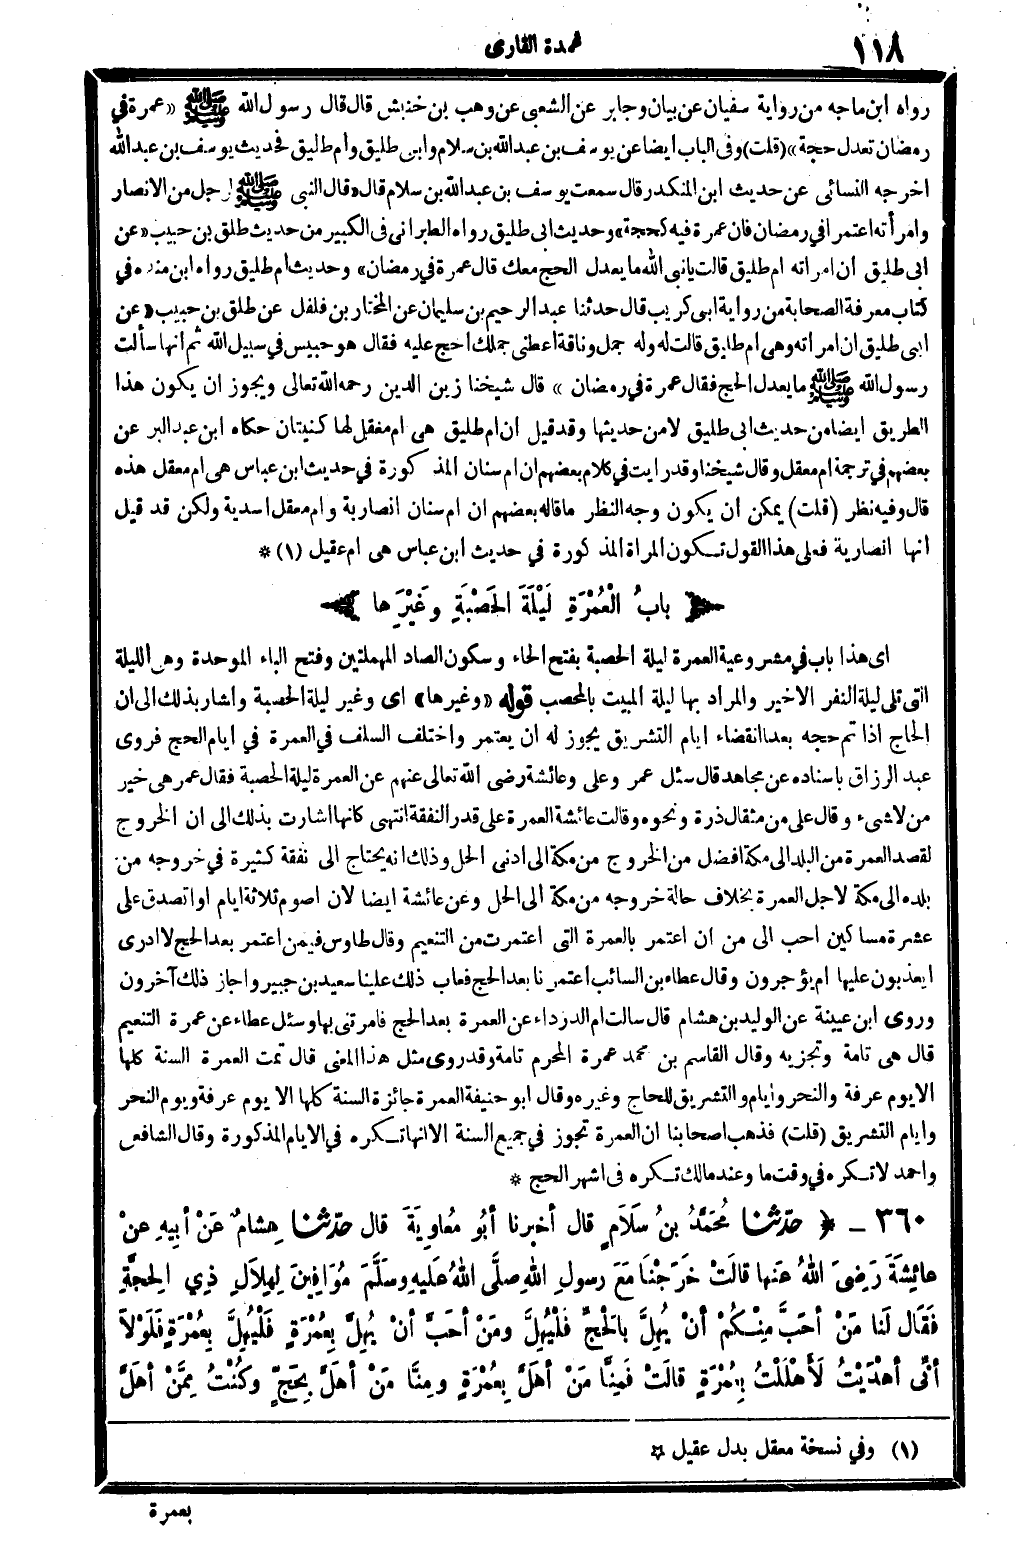 ١١٨
عمدة القارى
رواه ابن ماجه من رواية سفيان عن بيان وجابر عن الشعبى عن وهب بن خنبش قال قال رسول الله ﷺ «عمرة في
رمضان تعدل حجة» (قلت) وفى الباب ايضا عن يوسف بن عبد الله بن سلام وابى طليق وأم طليق فحديث يوسف بن عبد الله
اخرجه النسائى عن حديث ابن المنكدر قال سمعت يوسف بن عبد الله بن سلام قال «قال النبى ﷺ لرجل من الانصار
وامرأته اعتمرا في رمضان فان عمرة فيه كحجة» وحديث ابى طليق رواه الطبرانى فى الكبير من حديث طلق بن حبيب «عن
ابى طليق ان امراته ام طليق قالت يانبى الله ما يعدل الحج معك قال عمرة في رمضان» وحديث ام طليق رواه ابن منده في
كتاب معرفة الصحابة من رواية ابى كريب قال حدثنا عبد الرحيم بن سليمان عن المختار بن فلفل عن طلق بن حبيب «عن
ابى طليق ان امراته وهى ام طليق قالت له وله جمل وناقة اعطنى جملك احج عليه فقال هو حبيس في سبيل الله ثم انها سألت
رسول الله ﷺ ما يعدل الحج فقال عمرة في رمضان» قال شيخنا زين الدين رحمه الله تعالى ويجوز ان يكون هذا
الطريق ايضا من حديث ابى طليق لا من حديثها وقد قيل ان ام طليق هى ام معقل لها كنيتان حكاه ابن عبد البر عن
بعضهم في ترجمة ام معقل وقال شيخنا وقد رايت في كلام بعضهم ان ام سنان المذكورة في حديث ابن عباس هى ام معقل هذه
قال وفيه نظر (قلت) يمكن ان يكون وجه النظر ما قاله بعضهم ان ام سنان انصارية وام معقل اسدية ولكن قد قيل
انها انصارية فعلى هذا القول تكون المراة المذكورة في حديث ابن عباس هى ام عقيل (١) *
﴿ بابُ الْعُمْرَةِ لَيْلَةَ الحَصْبَةِ وغَيْرِها ﴾
اى هذا باب في مشروعية العمرة ليلة الحصبة بفتح الحاء وسكون الصاد المهملتين وفتح الباء الموحدة وهى الليلة
التى تلى ليلة النفر الاخير والمراد بها ليلة المبيت بالمحصب قوله «وغيرها» اى وغير ليلة الحصبة واشار بذلك الى ان
الحاج اذا تم حجه بعد انقضاء ايام التشريق يجوز له ان يعتمر واختلف السلف في العمرة في ايام الحج فروى
عبد الرزاق باسناده عن مجاهد قال سئل عمر وعلى وعائشة رضى الله تعالى عنهم عن العمرة ليلة الحصبة فقال عمر هى خير
من لاشىء وقال على من مثقال ذرة ونحوه وقالت عائشة العمرة على قدر النفقة انتهى كانها اشارت بذلك الى ان الخروج
لقصد العمرة من البلد الى مكة افضل من الخروج من مكة الى ادنى الحل وذلك انه يحتاج الى نفقة كثيرة في خروجه من
بلده الى مكة لاجل العمرة بخلاف حالة خروجه من مكة الى الحل وعن عائشة ايضا لان اصوم ثلاثة ايام او اتصدق على
عشرة مساكين احب الى من ان اعتمر بالعمرة التى اعتمرت من التنعيم وقال طاوس فيمن اعتمر بعد الحج لا ادرى
ايعذبون عليها ام يؤجرون وقال عطاء بن السائب اعتمرنا بعد الحج فعاب ذلك علينا سعيد بن جبير واجاز ذلك آخرون
وروى ابن عيينة عن الوليد بن هشام قال سالت ام الدرداء عن العمرة بعد الحج فامرتنى بها وسئل عطاء عن عمرة التنعيم
قال هى تامة وتجزيه وقال القاسم بن محمد عمرة المحرم تامة وقد روى مثل هذا المعنى قال تمت العمرة السنة كلها
الا يوم عرفة والنحر وايام والتشريق للحاج وغيره وقال ابو حنيفة العمرة جائزة السنة كلها الا يوم عرفة ويوم النحر
وايام التشريق (قلت) فذهب اصحابنا ان العمرة تجوز في جميع السنة الا انها تكره في الايام المذكورة وقال الشافعى
واحمد لا تكره في وقت ما وعند مالك تكره فى اشهر الحج *
٣٦٠ ـ ﴿ حدّثنا مُحَمَّدُ بنُ سَلَامٍ قال أخبرنا أبُو مُعاوِيَةَ قال حدّثنا هِشامٌ عَنْ أبيهِ عنْ
عائِشَةَ رَضِىَ اللهُ عَنها قالَتْ خرَجْنا مَعَ رسولِ اللهِ صلَّى اللهُ عَليهِ وسَلَّمَ مُوَافِينَ لِهِلاَلِ ذِي الحِجَّةِ
فَقَال لَنا مَنْ أحَبَّ مِنْكُمْ أنْ يُهِلَّ بالحَجِّ فَلْيُهِلَّ ومَنْ أحَبَّ أنْ يُهِلَّ بِعُمْرَةٍ فَلْيُهِلَّ بِعُمْرَةٍ فَلَوْلاَ
أنِّى أهْدَيْتُ لَأَهْلَلْتُ بِعُمْرَةٍ قالَتْ فَمِنَّا مَنْ أهَلَّ بِعُمْرَةٍ ومِنَّا مَنْ أهَلَّ بِحَجٍّ وكُنْتُ مِمَّنْ أهَلَّ
(١) وفي نسخة معقل بدل عقيل *
بعمرة